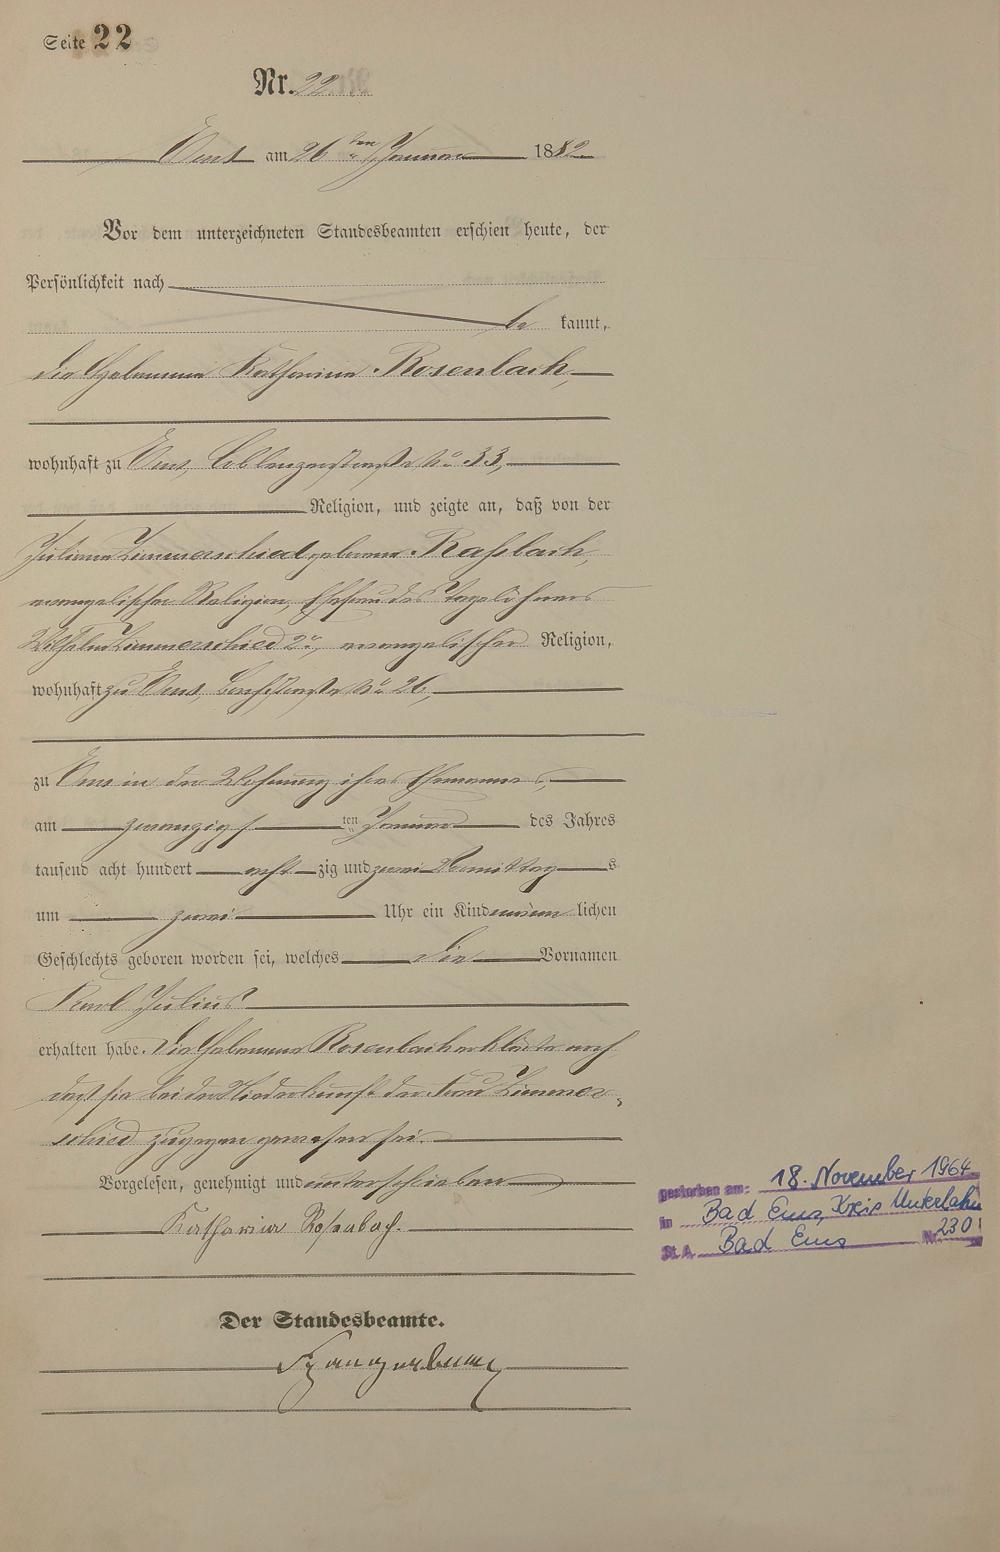 Seite 22
Nr. 22.
Ems am 26ten Januar 1882.
Vor dem unterzeichneten Standesbeamten erschien heute, der
Persönlichkeit nach
be kannt,
die Hebamme Katharina Rosenbach,
wohnhaft zu Ems, Coblenzerstraße No 33,
Religion, und zeigte an, daß von der
Juliane Zimmerschied geborene Raßbach,
evangelischer Religion, Ehefrau des Tagelöhners
Wilhelm Zimmerschied 2r, evangelischer Religion,
wohnhaft zu Ems, No 26,
zu Ems in der Wohnung ihres Ehemannes,
am zwanzigsten Januar des Jahres
tausend acht hundert acht zig und zwei Vormittags
um zwei Uhr ein Kind männlichen
Geschlechts geboren worden sei, welches die Vornamen
Karl Julius
erhalten habe. Die Hebamme Rosenbach erklärte noch
daß sie bei der Niederkunft der Frau Zimmer-
schied zugegen gewesen sei.
Vorgelesen, genehmigt und unterschrieben
Katharina Rosenbach.
Der Standesbeamte.
gestorben am: 18. November 1964
in Bad Ems, Kreis Unterlahn
St. A. Bad Ems Nr. 230